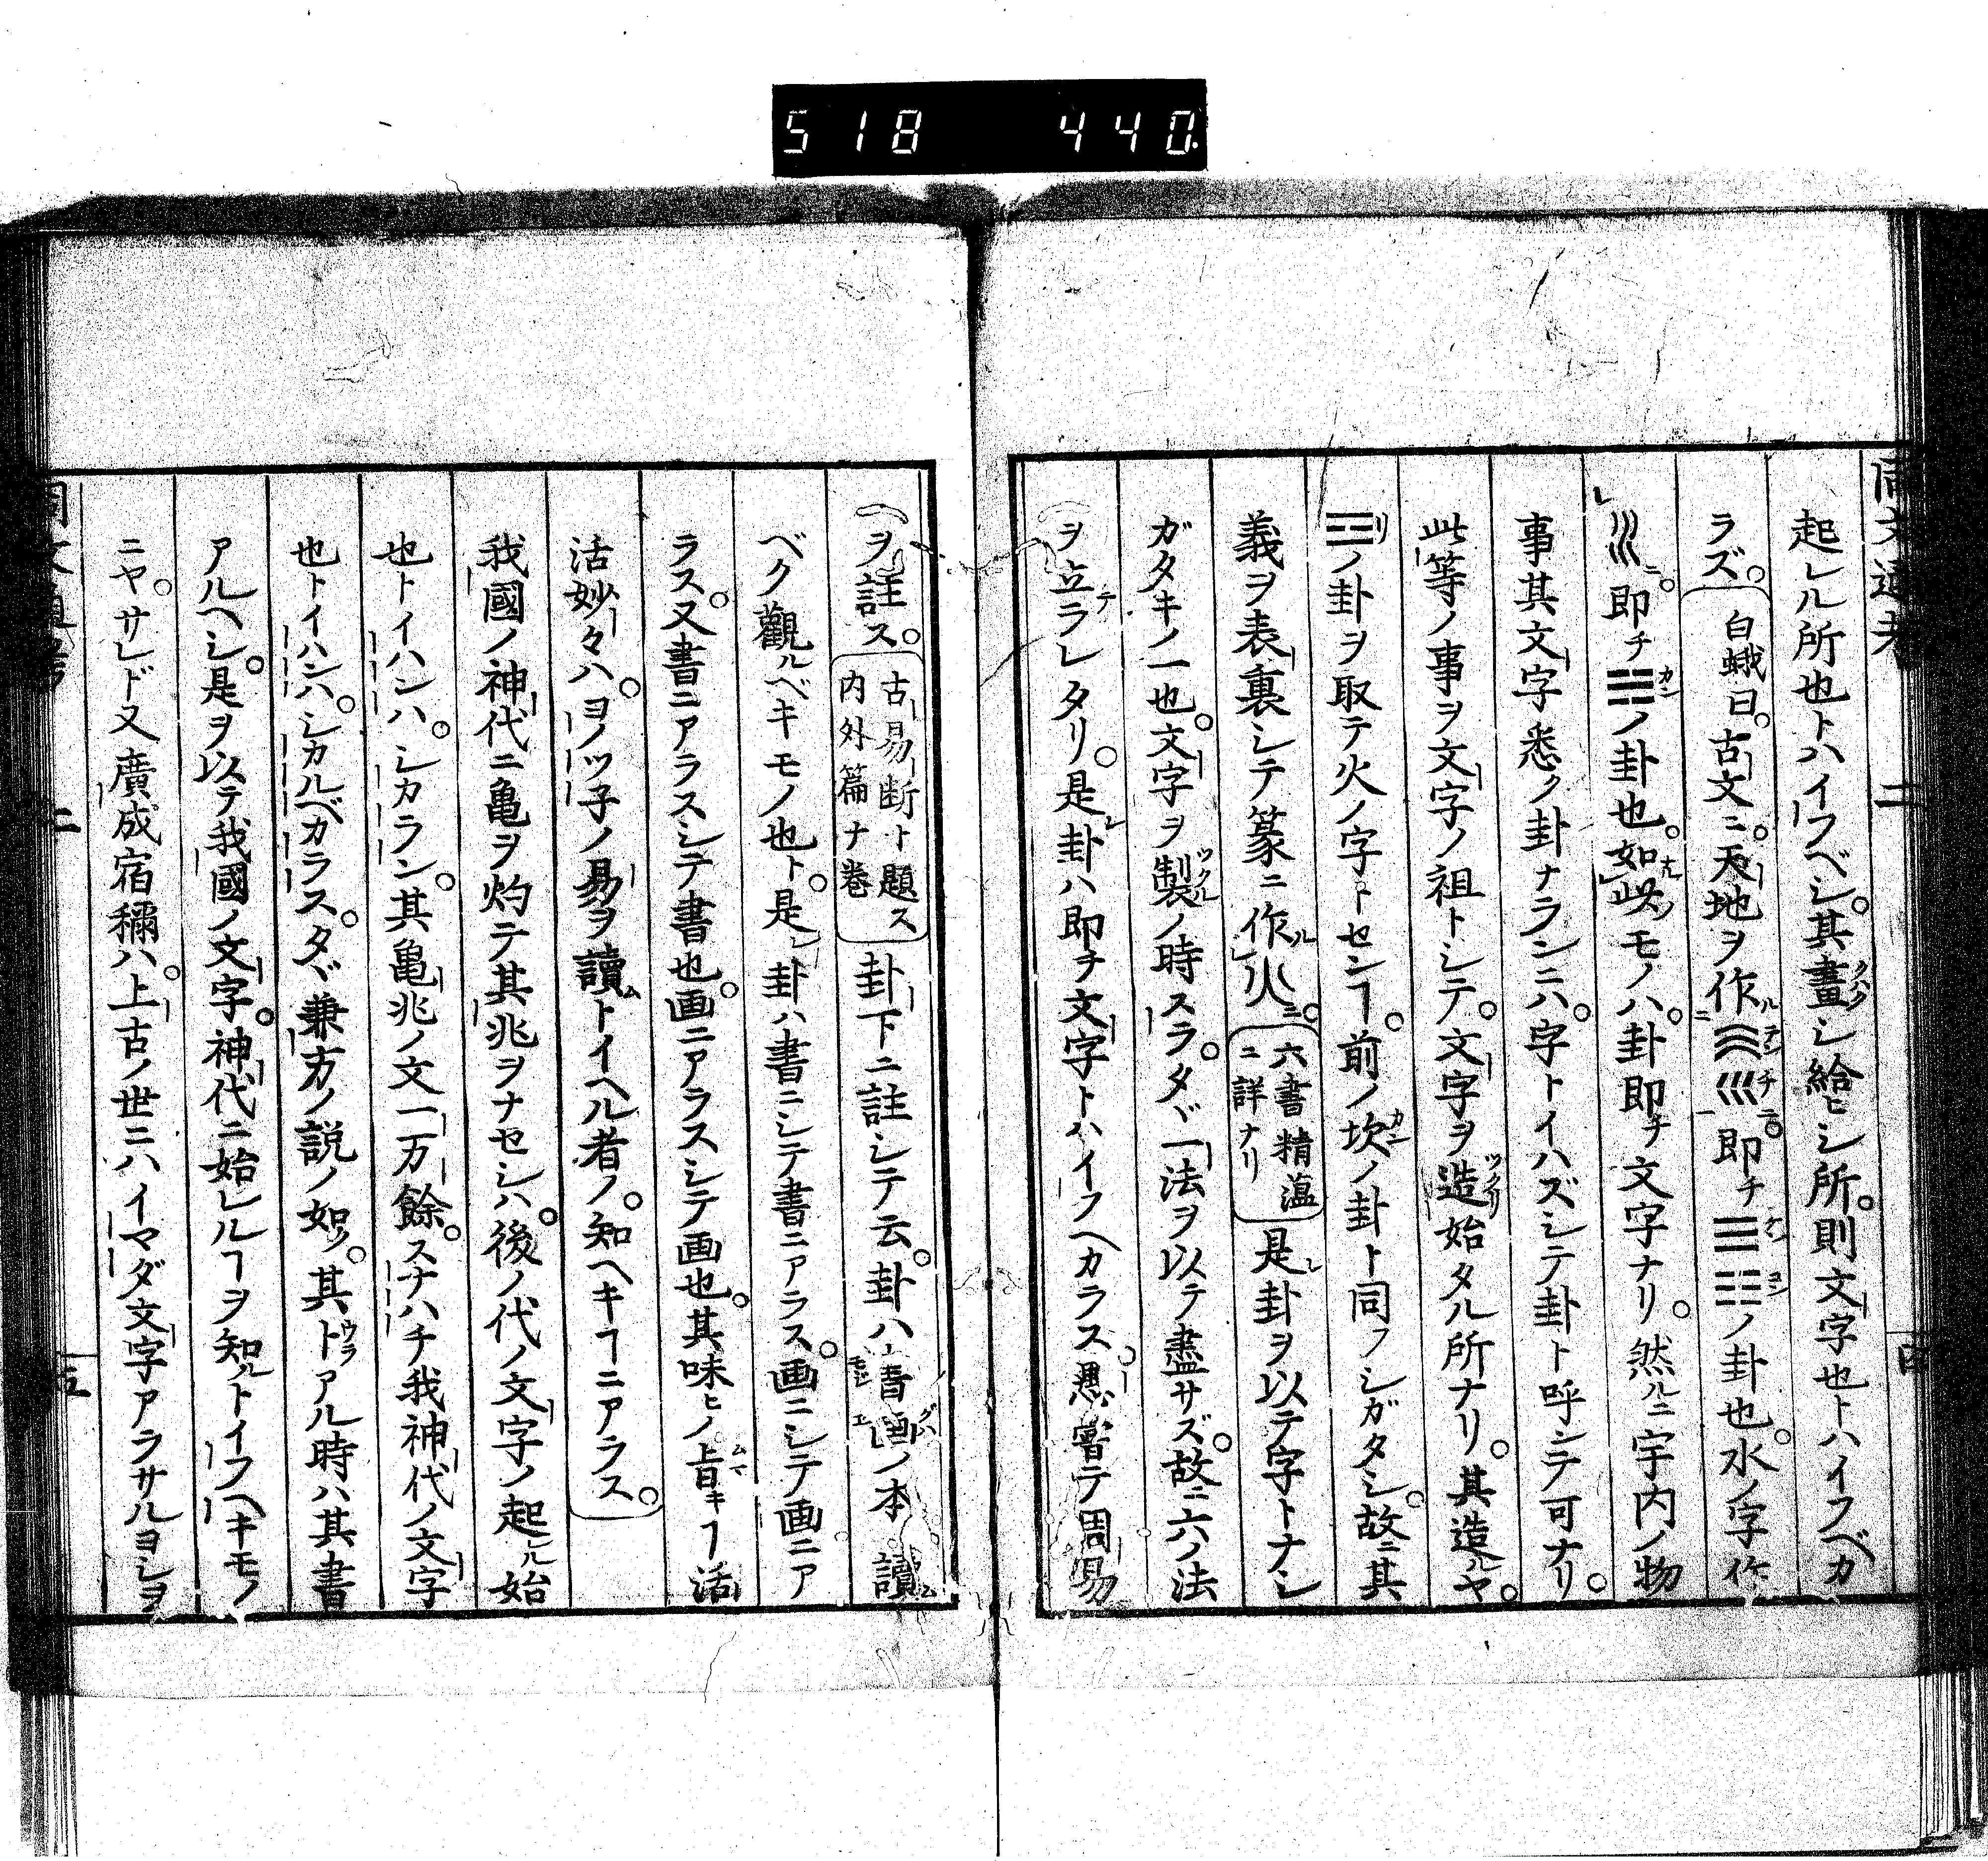 518 440.
同文通考 二 四
起レル所也トハイフベシ。其畫シ給ヒシ所。則文字也トハイフベカ
ラズ。白蛾曰。古文ニ。天地ヲ作 即チ☰☷ノ卦也。水ノ字作
即チ☵ノ卦也。如此ノモノハ。卦即チ文字ナリ。然ルニ宇内ノ物
事其文字悉ク卦ナランニハ。字トイハズシテ卦ト呼シテ可ナリ。
此等ノ事ヲ文字ノ祖トシテ。文字ヲ造始タル所ナリ。其造ルヤ。
☲ノ卦ヲ取テ火ノ字トセンヿ。前ノ坎ノ卦ト同フシガタシ。故ニ其
義ヲ表裏シテ篆ニ作火ニ。六書精温
ニ詳ナリ是レ卦ヲ以テ字トナシ
ガタキノ一也。文字ヲ製ノ時スラ。タヾ一法ヲ以テ盡サズ。故ニ六ノ法
ヲ立ラレタリ。是レ卦ハ即チ文字トハイフヘカラス。愚嘗テ周易
ヲ註ス。古易断ト題ス
内外篇十巻卦下ニ註シテ云。卦ハ書画ノ本 讀
ベク觀ルベキモノ也ト。是レ卦ハ書ニシテ書ニアラス。画ニシテ画ニア
ラス。又書ニアラスシテ書也。画ニアラスシテ画也。其味ヒノ旨キヿ活
活妙々ハ。ヨノツ子ノ易ヲ讀トイヘル者ノ。知ヘキヿニアラス。
我國ノ神代ニ亀ヲ灼テ其兆ヲナセシハ。後ノ代ノ文字ノ起ル始
也トイハンハ。シカラン。其亀兆ノ文一万餘。スナハチ我神代ノ文字
也トイハンハ。シカルベカラス。タヾ兼方ノ説ノ如ク。其トアル時ハ其書
アルヘシ。是ヲ以テ我國ノ文字。神代ニ始レルヿヲ知ルトイフヘキモノ
ニヤ。サレド又廣成宿禰ハ。上古ノ世ニハイマダ文字アラサルヨシヲ
二 五